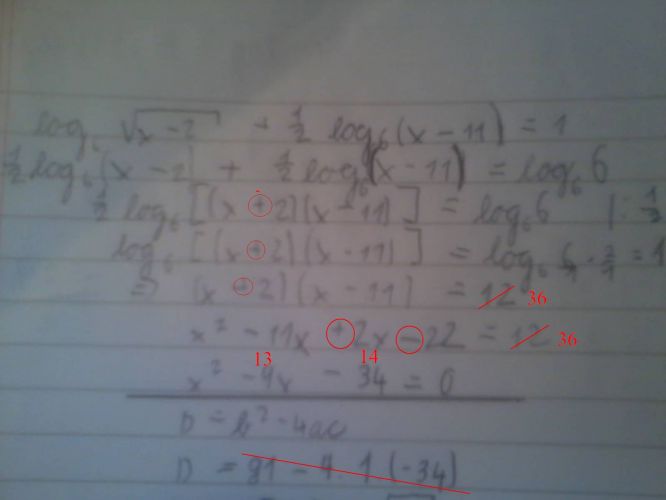 log₆ √x-2 + ½ log₆(x-11) = 1
½ log₆(x-2) + ½ log₆(x-11) = log₆ 6
½ log₆ [(x+2)(x-11)] = log₆ 6 |: ½
log₆ [(x+2)(x-11)] = log₆
⇒ (x+2)(x-11) = 12 36
x² - 11x + 2x - 22 = 12 36
13 14
x² - 9x - 34 = 0
D = b² - 4ac
D = 81 - 4. 1. (-34)